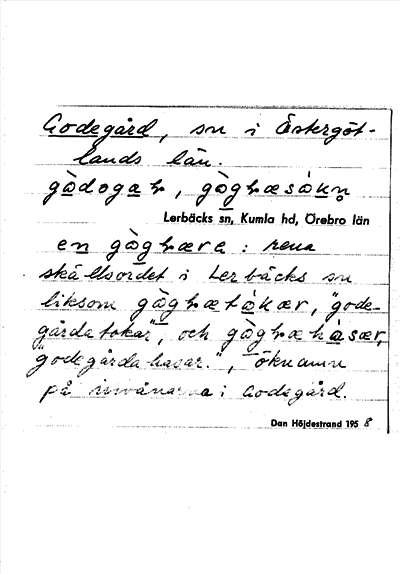 Godegård, sn i Östergöt-
lands län.
gòdogaɽ, gògɽæsòkn̥
Lerbäcks sn, Kumla hd, Örebro län
en gògɽære: rena
skällsordet i Lerbäcks sn
liksom gògɽætòkær, "gode-
gårdatokar", och gògɽæhàsær,
"godegårdahasar.", öknamn
på invånarna i Godegård.
Dan Höjdestrand 1958